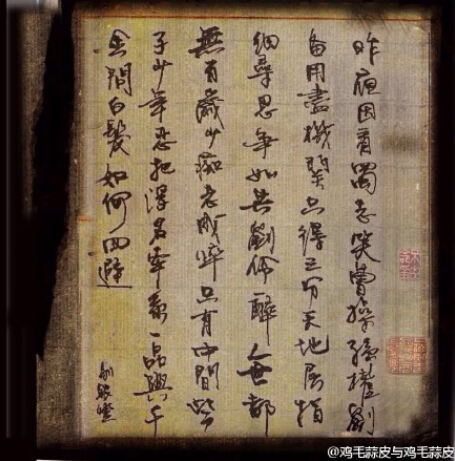 昨夜因看蜀志笑曹操孫權劉
备用盡機關只得三分天地屈指
細尋思爭如共劉伶一醉人世都
無百歲少痴老成悴只有中間些
子少年忍把浮名牽系一品與千
金問白髮如何回避
剔銀燈
@鸡毛蒜皮与鸡毛蒜皮